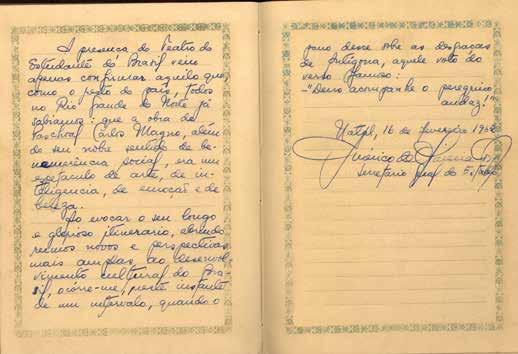 A presença do Teatro do
Estudante do Brasil vem
apenas confirmar aquilo que,
como o resto do país, todos
no Rio Grande do Norte já
sabiamos: que a obra de
Paschoal Carlos Magno, além
de seu nobre sentido de be-
nemerência social, era um
espetaculo de arte, de in-
teligencia, de emoção e de
beleza.
Ao evocar o seu longo
e glorioso itinerario, abrindo
rumos novos e perspectivas
mais amplas, ao desenvol-
vimento cultural do Bra-
sil, ocorre-me, neste instante
de um intervalo, quando o
pano desce sobre as desgraças
de Antigona, aquele voto do
verso famoso:
-"Deus acompanhe o peregrino
audaz!"
Natal, 16 de fevereiro 1952
Américo de
Secretario Geral do Estado